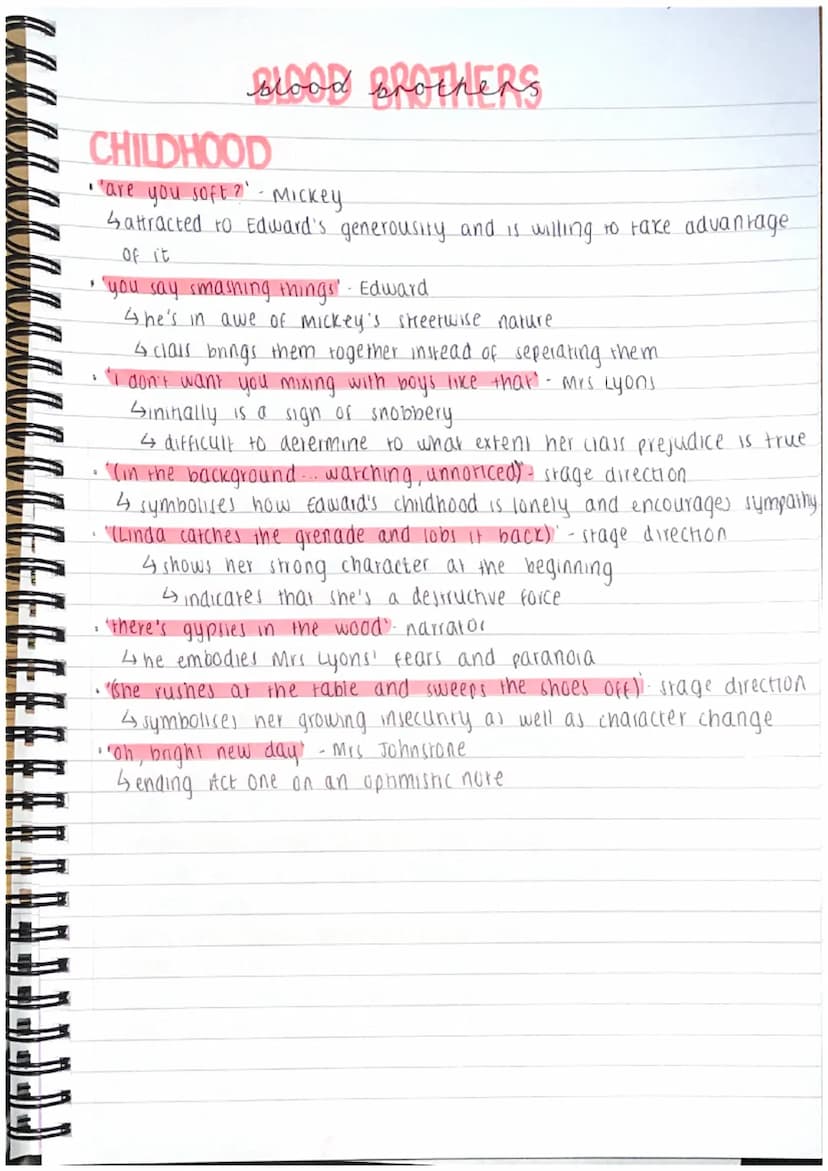 BLOOD BROTHERS
blood brothers
CHILDHOOD
• 'are you soft?' - Mickey
↳ attracted to Edward's generousity and is willing to take advantage
of it
• 'you say smashing things' - Edward
↳ he's in awe of Mickey's streetwise nature
↳ class brings them together instead of seperating them
• 'I don't want you mixing with boys like that' - Mrs Lyons
↳ initially is a sign of snobbery
↳ difficult to determine to what extent her class prejudice is true
• '(in the background... watching, unnoticed)' - stage direction
↳ symbolises how Edward's childhood is lonely and encourages sympathy
• '(Linda catches the grenade and lobs it back)' - stage direction
↳ shows her strong character at the beginning
↳ indicates that she's a destructive force
• 'there's gypsies in the wood' - narrator
↳ he embodies Mrs Lyons' fears and paranoia
• '(she rushes at the table and sweeps the shoes off)' - stage direction
↳ symbolises her growing insecurity as well as character change
• 'oh, bright new day' - Mrs Johnstone
↳ ending Act one on an optimistic note